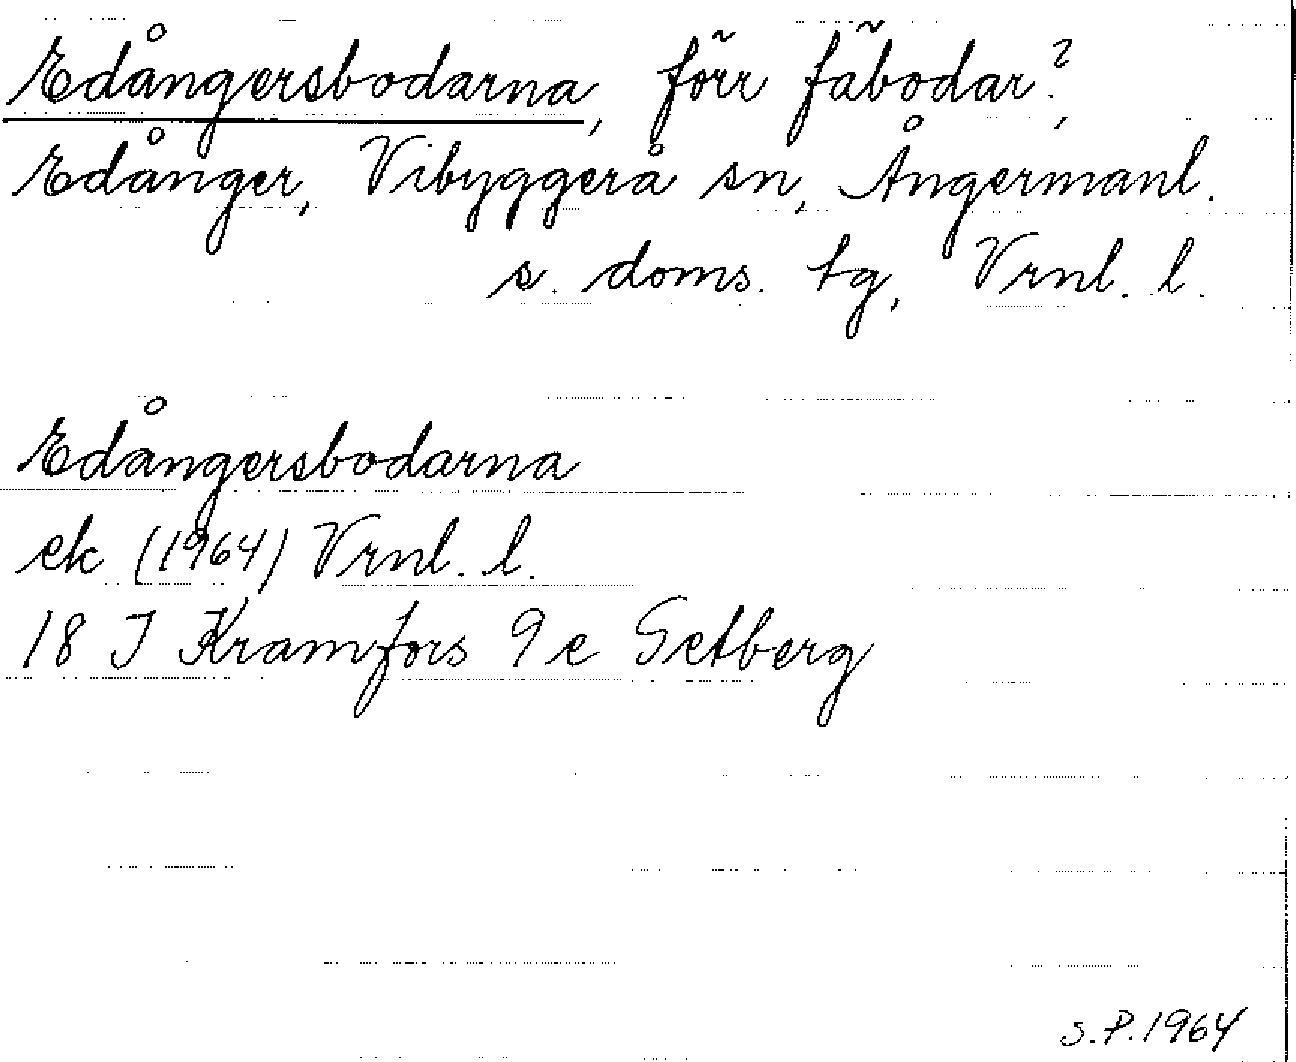 Edångersbodarna, förr fäbodar?,
Edånger, Vibyggerå sn, Ångermanl.
s. doms. tg, Vrnl. l.
Edångersbodarna
ek (1964) Vrnl. l.
18 J Kramfors 9 e Getberg
S.P. 1964